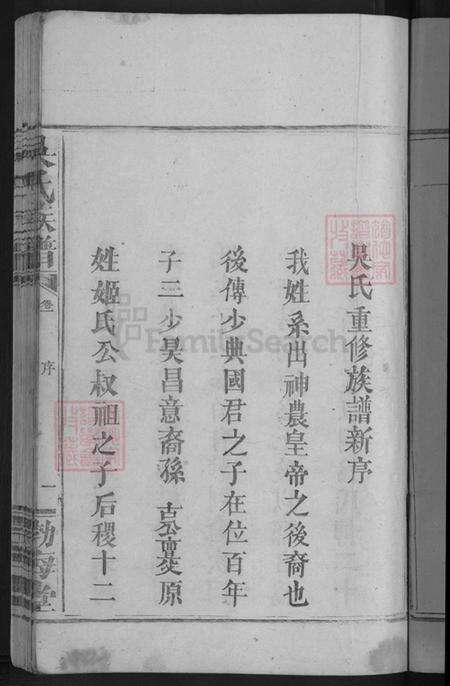 吳氏重修族譜新序
我姓系出神農皇帝之後裔也
後傳少典國君之子在位百年
子三少昊昌意裔孫古公亶父原
姓姬氏公叔祖之子后稷十二
吳氏族譜
卷
序
一
FamilySearch